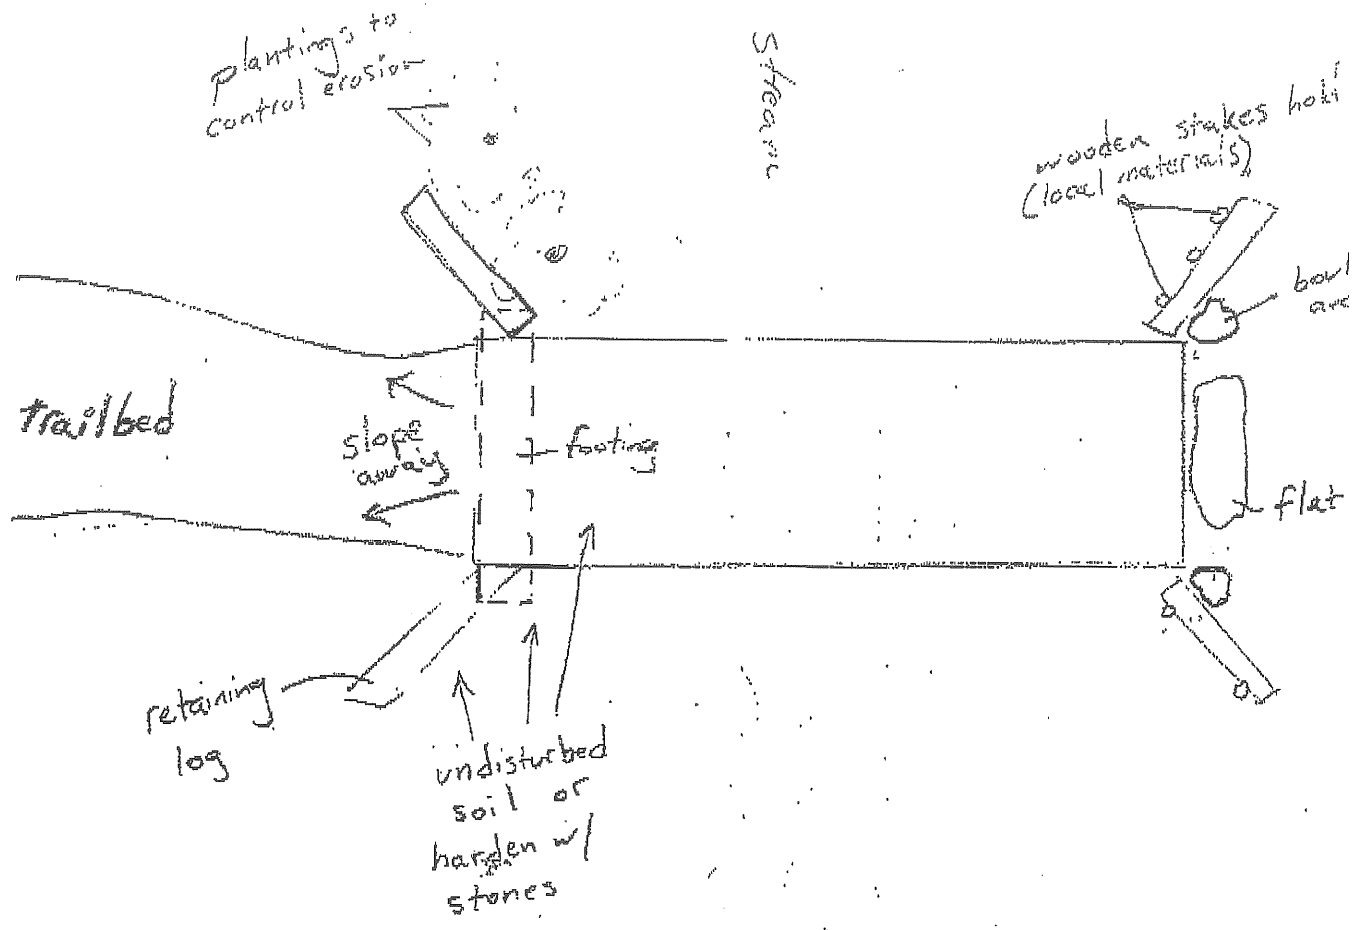 plantings to
control erosion
Stream
wooden stakes
(local materials)
trailbed
slope
away
footing
flat
retaining
log
undisturbed
soil or
harden w/
stones